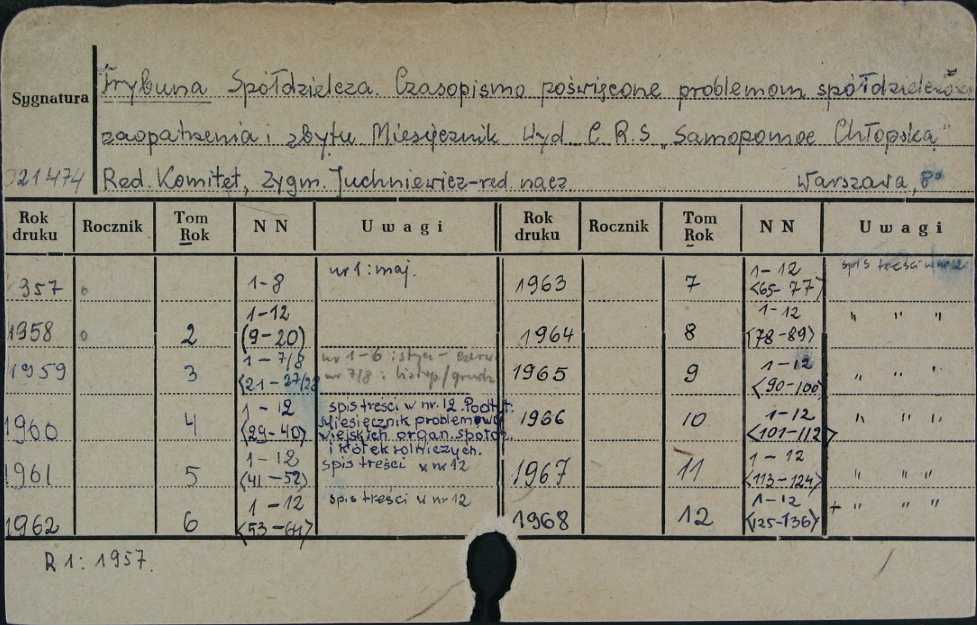 Sygnatura
Trybuna Spółdzielcza. Czasopismo poświęcone problemom spółdzielczości
zaopatrzenia i zbytu. Miesięcznik. Wyd. C.R.S. „Samopomoc Chłopska"
021474 Red. Komitet, Zygm. Juchniewicz-red. nacz. Warszawa, 8°
Rok druku Rocznik Tom Rok NN Uwagi Rok druku Rocznik Tom Rok NN Uwagi
1957 1-8 nr 1: maj. 1963 7 1-12 <65-77> spis treści w nr 12
1958 2 1-12 (9-20) 1964 8 1-12 <78-89> " " "
1959 3 1-7/8 <21-27/28 nr 1-6: stycz-czerw. nr 7/8: listop/grudz 1965 9 1-12 <90-100> " " "
1960 4 1-12 <29-40> spis treści w nr. 12. Podtyt. Miesięcznik problemowy wiejskich organ. społdz. i kółek rolniczych. 1966 10 1-12 <101-112> " " "
1961 5 1-12 <41-52> spis treści w nr 12 1967 11 1-12 <113-124> " " "
1962 6 1-12 <53-64> spis treści w nr 12 1968 12 1-12 <125-136> + " " "
R 1: 1957.